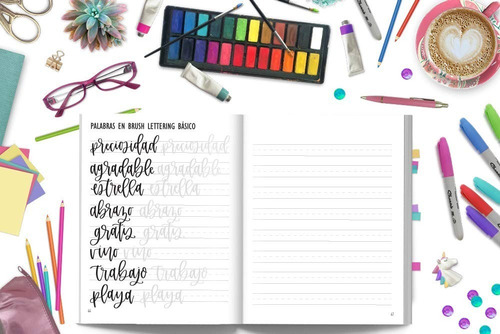 PALABRAS EN BRUSH LETTERING BÁSICO
preciosidad preciosidad
agradable agradable
estrella estrella
abrazo abrazo
gratis gratis
vino vino
trabajo trabajo
playa playa